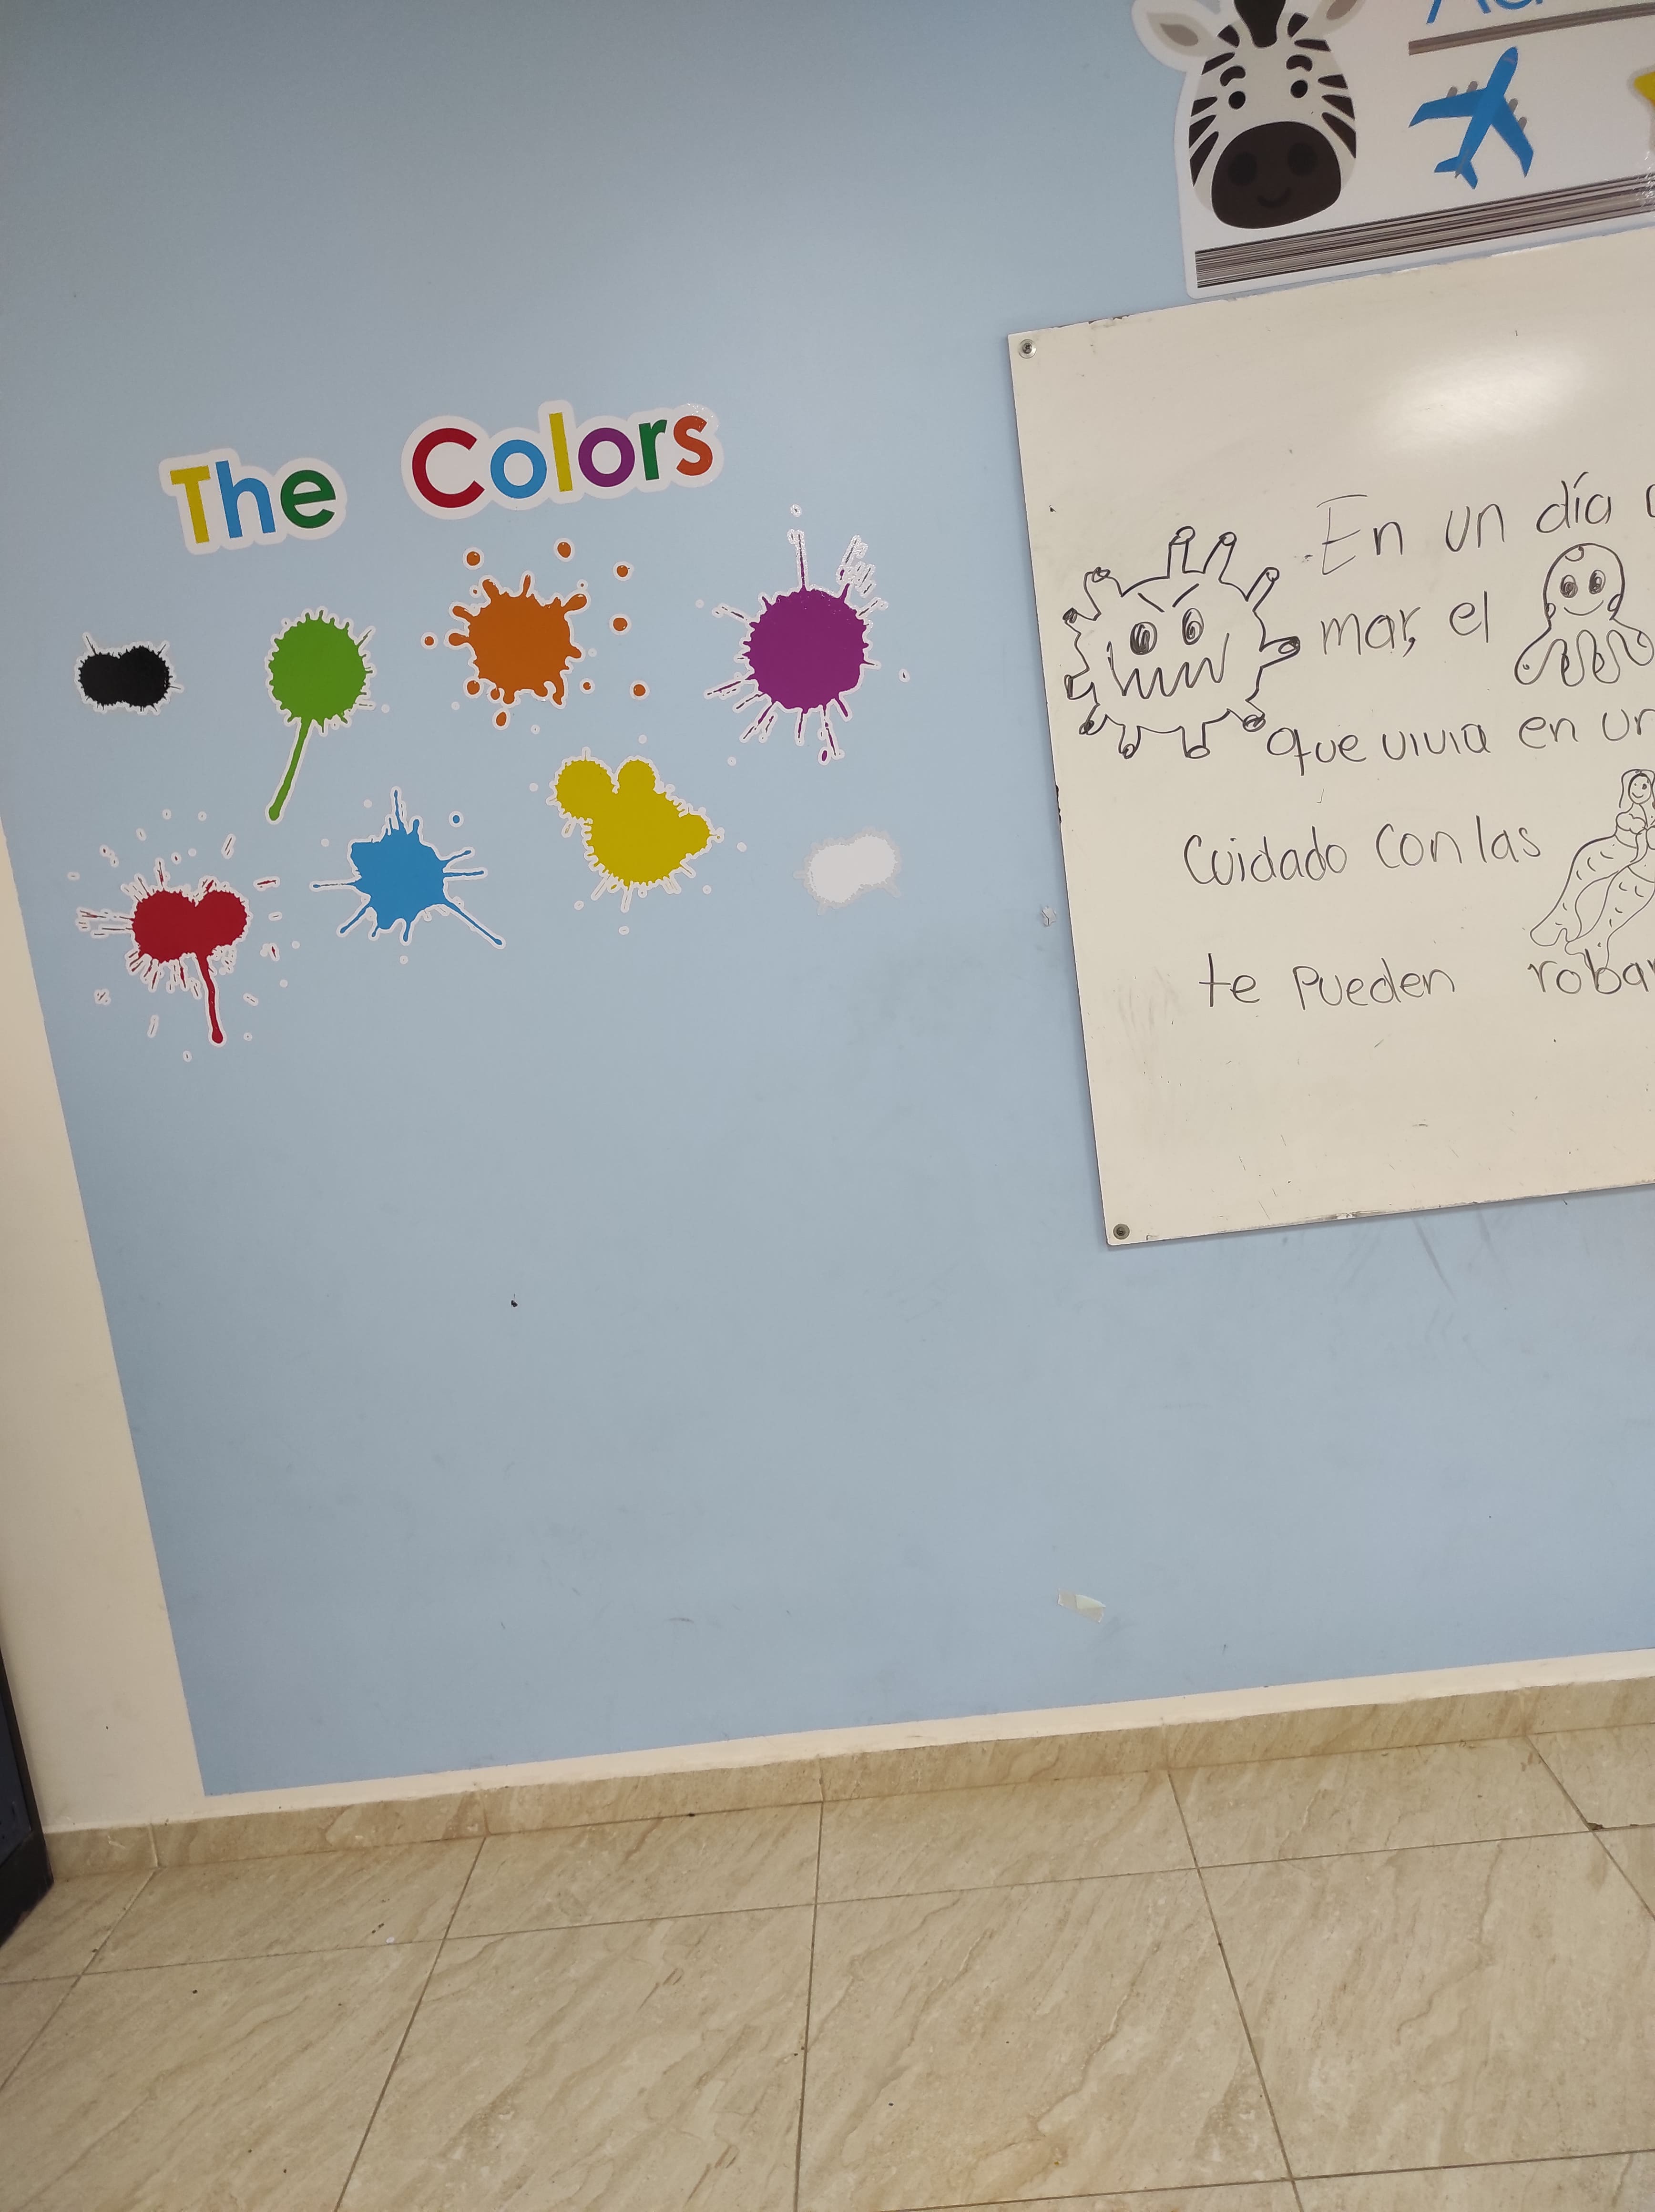 The Colors
En un día
mar, el
que vivia en
Cuidado con las
te pueden